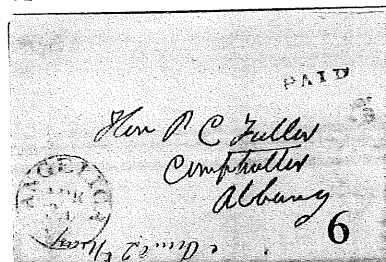 PAID
Hon P C Fuller
Comptroller
Albany
ANGELICA
APR
6